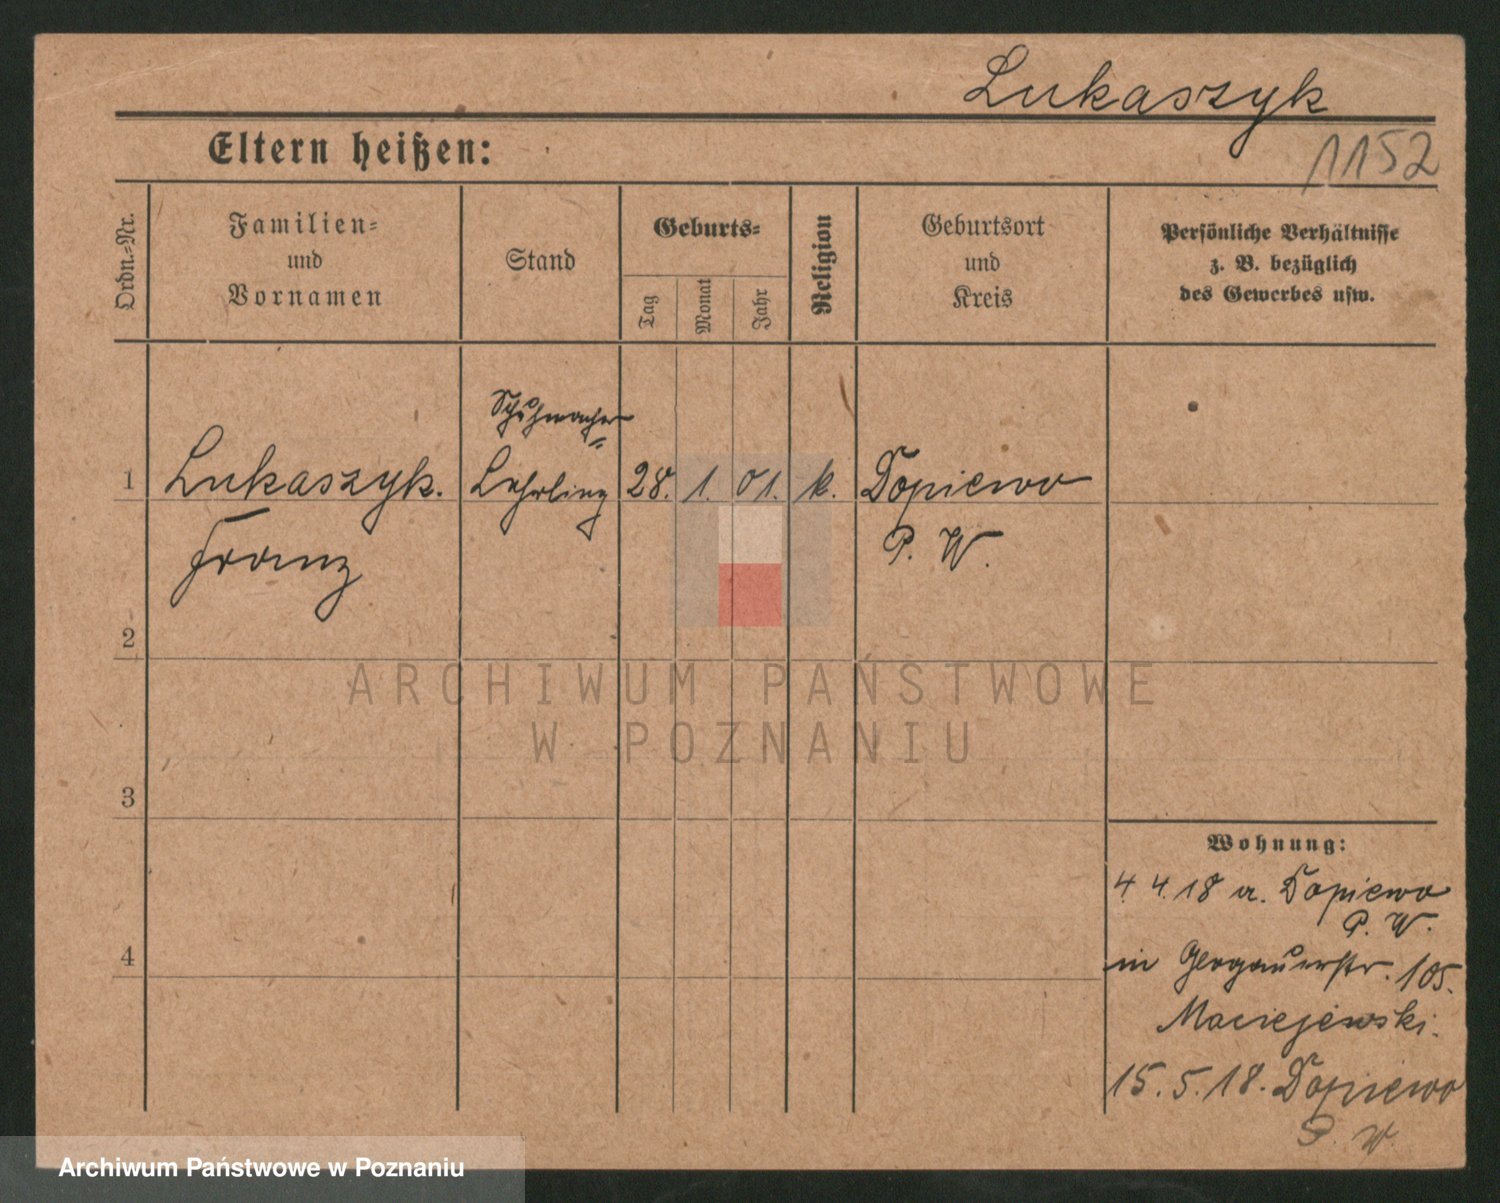 Lukaszyk
1152
Eltern heißen:
Ordn.=Nr.
Familien=
und
Vornamen
Stand
Geburts=
Tag
Monat
Jahr
Religion
Geburtsort
und
Kreis
Persönliche Verhältnisse
z. B. bezüglich
des Gewerbes usw.
Schuhmacher=
1 Lukaszyk. Lehrling 28. 1. 01. k. Dopiewo
Franz P. W.
2
ARCHIWUM PAŃSTWOWE
W POZNANIU
3
Wohnung:
4. 4. 18 a. Dopiewo
P. W.
4
in Glogauerstr. 105.
Maciejewski.
15. 5. 18. Dopiewo
P. W.
Archiwum Państwowe w Poznaniu